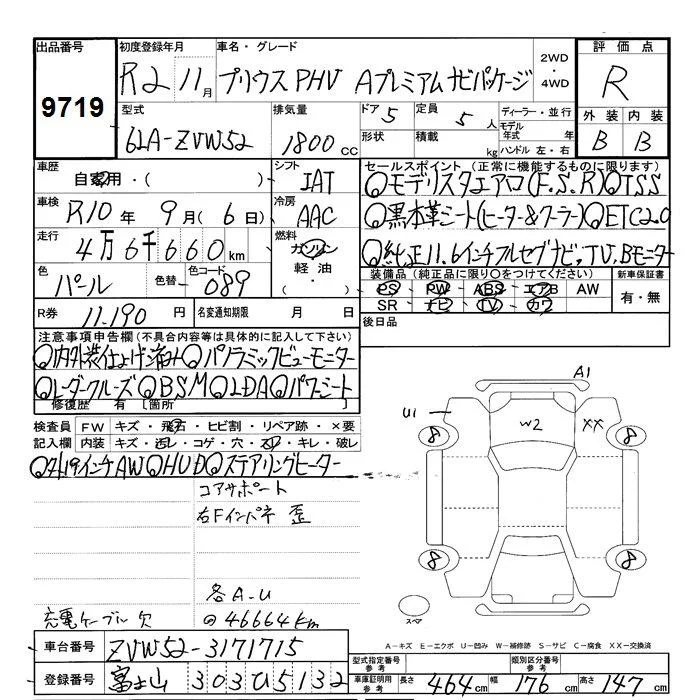 出品番号 初度登録年月 車名・グレード 2WD・4WD 評価点
9719 R2 11月 プリウスPHV Aプレミアム ナビパッケージ R
型式 排気量 ドア 5 定員 5人 ディーラー・並行 外装 内装
6LA-ZVW52 1800cc 形状 積載 kg モデル年式 年 ハンドル 左・右 B B
車歴 自家用・( ) シフト IAT セールスポイント (正常に機能するものに限ります)
◎モデリスタエアロ(F.S.R)◎TSS
車検 R10年 9月(6日) 冷房 AAC ◎黒本革シート(ヒーター&クーラー)◎ETC2.0
走行 4万6千660km 燃料 ガソリン 軽油・( ) ◎純正11.6インチフルセグナビ,TV,Bモニター
色 パール 色替 色コード 089 装備品 (純正品に限り〇をつけてください) 新車保証書
PS PW ABS エアB AW 有・無
SR ナビ TV カワ
R券 11,190円 名変通知期限 月 日 後日品
注意事項申告欄 (不具合内容等は具体的に記入して下さい)
◎内外装仕上げ済み◎パノラミックビューモニター
◎レーダークルーズ◎BSM◎LDA◎パワーシート
修復歴 有 [箇所
検査員記入欄 FW キズ・飛石・ヒビ割・リペア跡・×要
内装 キズ・汚れ・コゲ・穴・スレ・キレ・破レ
◎社19インチAW◎HUD◎ステアリングヒーター
コアサポート
右Fインパネ 歪
各A-U
充電ケーブル欠 @46664km
A1
U1 W2 XX
8 8
8 8
スペア
A-キズ E-エクボ U-凹み W-補修跡 S-サビ C-腐食 XX-交換済
車台番号 ZVW52-3171715 型式指定番号 参考 類別区分番号 参考
登録番号 富士山 303ひ5132 車庫証明用 参考 長さ 464cm 幅 176cm 高さ 147cm